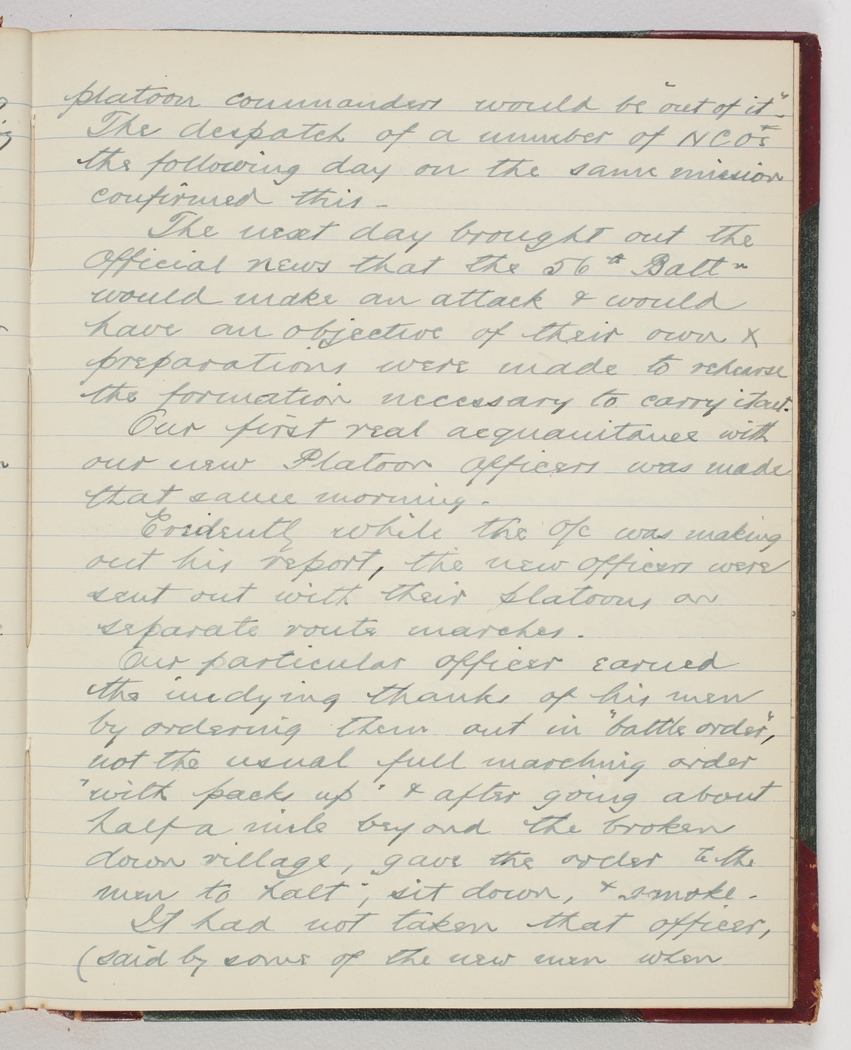 platoon commanders would be "out of it".
The despatch of a number of NCOs
the following day on the same mission
confirmed this -
The next day brought out the
official news that the 56th Battn
would make an attack & would
have an objective of their own &
preparations were made to rehearse
the formation necessary to carry it out.
Our first real acquanitance with
our new Platoon Officers was made
that same morning -
Evidently while the O/c was making
out his report, the new officers were
sent out with their platoons on
separate route marches.
Our particular officer earned
the undying thanks of his men
by ordering them out in "battle order",
not the usual full marching order
"with packs up" & after going about
half a mile beyond the broken
down village, gave the order to the
men to halt; sit down, & smoke.
It had not taken that officer,
(said by some of the new men when